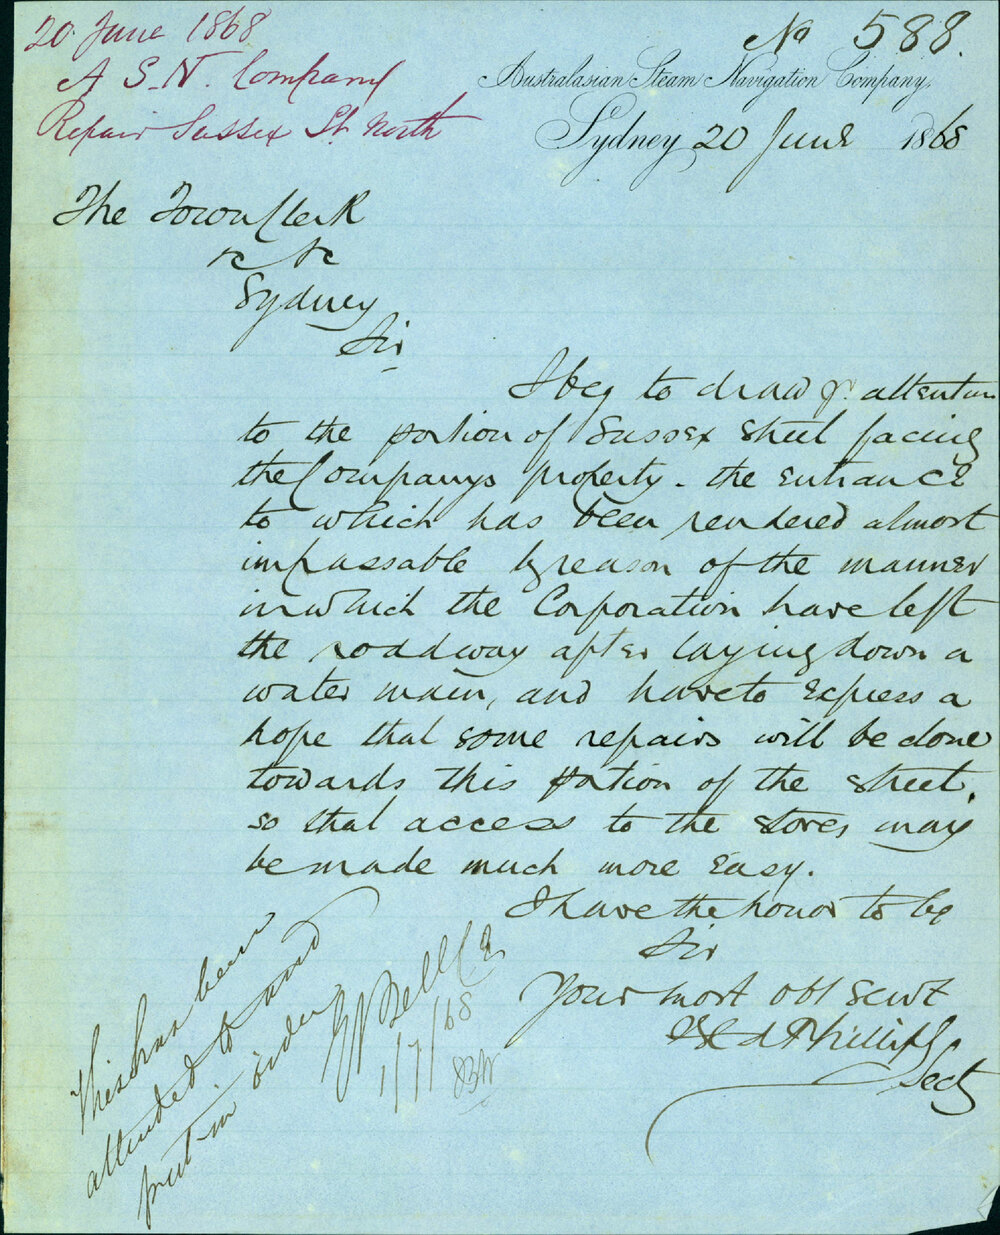 20 June 1868
A S.N. Company
Repair Sussex St. North
No 588.
Australasian Steam Navigation Company,
Sydney 20 June 1868
The Town Clerk
&c &c
Sydney
Sir
I beg to draw yr. attention
to the portion of Sussex Street facing
the Companys property - the entrance
to which has been rendered almost
impassable by reason of the manner
in which the Corporation have left
the roadway after laying down a
water main, and have to express a
hope that some repairs will be done
towards this portion of the street,
so that access to the stores may
be made much more easy.
I have the honor to be
Sir
Your most obt servt
Phillips
Secty
This has been
attended to and
put in order
Bell C E
1/7/68